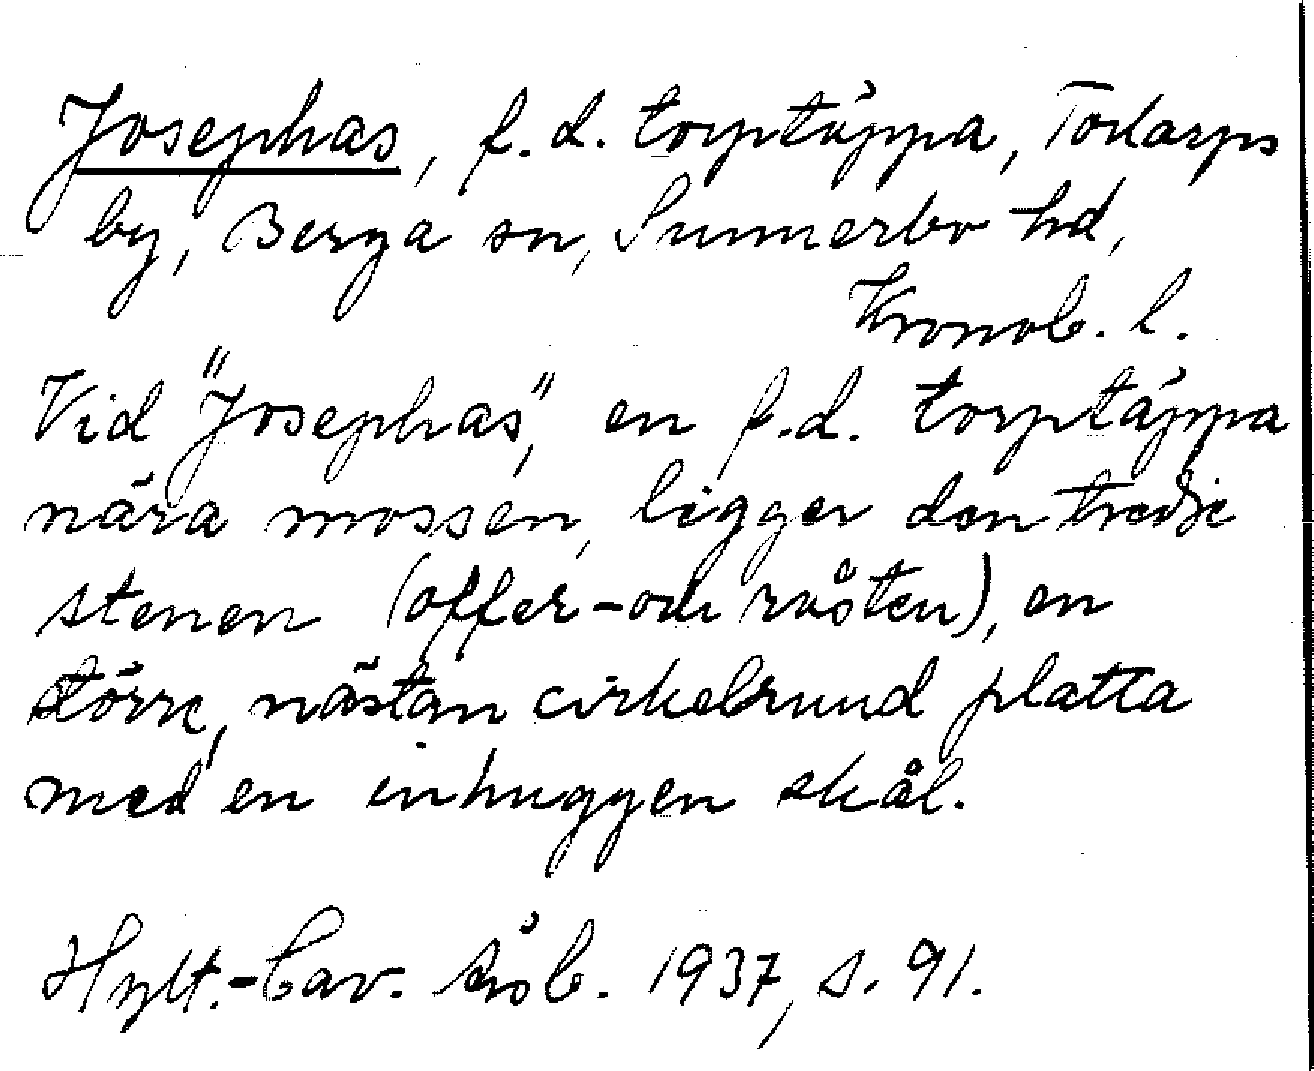 Josephas, f. d. torptäppa, Torlarps
by, Berga sn, Sunnerbo hd,
Kronob. l.
Vid "Josephas", en f.d. torptäppa
nära mossen, ligger den tredje
stenen (offer- och rösten), en
större, nästan cirkelrund platta
med en inhuggen skål.
Hylt.-Cav. årsb. 1937, s. 91.